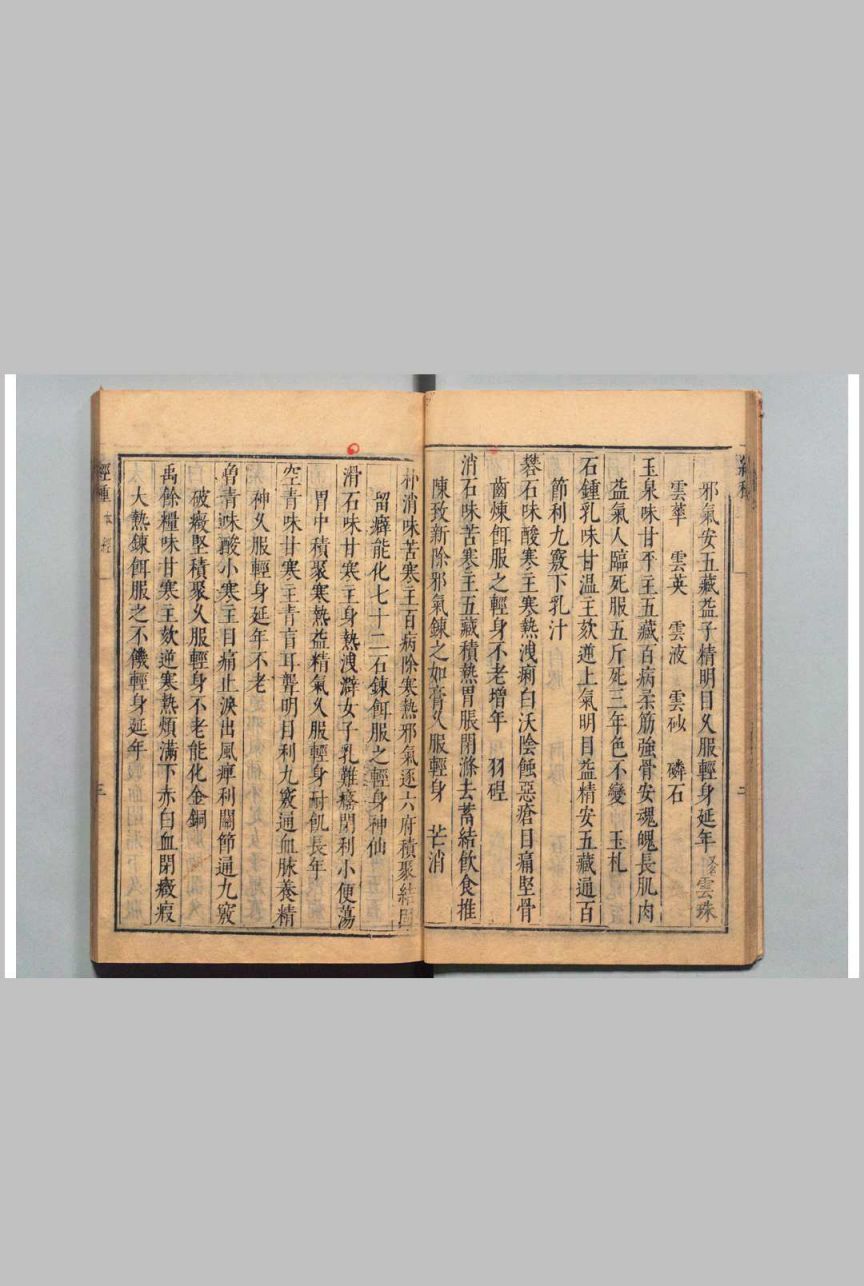 邪氣安五藏益子精明目久服輕身延年 一名雲珠
雲華 雲英 雲液 雲砂 磷石
玉泉味甘平主五藏百病柔筋強骨安魂魄長肌肉
益氣人臨死服五斤死三年色不變 玉札
石鍾乳味甘温主欬逆上氣明目益精安五藏通百
節利九竅下乳汁
礬石味酸寒主寒熱洩痢白沃陰蝕惡瘡目痛堅骨
齒煉餌服之輕身不老增年 羽䂠
消石味苦寒主五藏積熱胃脹閉滌去蓄結飲食推
陳致新除邪氣鍊之如膏久服輕身 芒消
二
朴消味苦寒主百病除寒熱邪氣逐六府積聚結固
留癖能化七十二石鍊餌服之輕身神仙
滑石味甘寒主身熱洩澼女子乳難癃閉利小便蕩
胃中積聚寒熱益精氣久服輕身耐飢長年
空青味甘寒主青盲耳聾明目利九竅通血脉養精
神久服輕身延年不老
曾青味酸小寒主目痛止淚出風痺利關節通九竅
破癥堅積聚久服輕身不老能化金銅
禹餘糧味甘寒主欬逆寒熱煩滿下赤白血閉癥瘕
大熱鍊餌服之不饑輕身延年
經種 本經
三